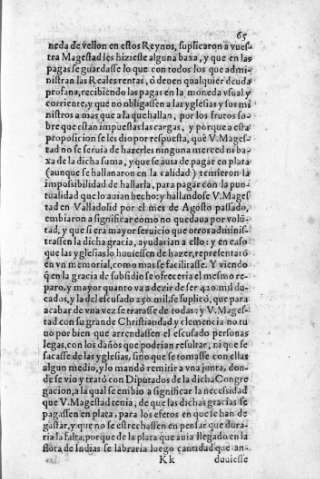 65
neda de vellon en estos Reynos, suplicaron a vues-
tra Magestad les hiziesse alguna baxa, y que en las
pagas se guardasse lo que con todos los que admi-
nistran las Reales rentas, ò deuen qualquier deuda
profana, recibiendo las pagas en la moneda vsual y
corriente, y que no obligassen a las yglesias y sus mi
nistros a mas que a la que hallan, por los frutos so-
bre que estan impuestas las cargas, y porque a esta
proposicion se les dio por respuesta, que V. Mages-
tad no se seruia de hazerles ninguna merced ni ba-
xa de la dicha suma, y que se auia de pagar en plata
(aunque se hallanaron en la calidad) temieron la
impossibilidad de hallarla, para pagar con la pun-
tualidad que lo auian hecho: y hallandose V. Mages-
tad en Valladolid por el mes de Agosto passado,
embiaron a significar como no quedaua por volũ-
tad, y que si era mayor seruicio que otros adminis-
trassen la dicha gracia, ayudarian a ello: y en caso
que las yglesias lo houiessen de hazer, representarō
en vn memorial, como mas se facilitasse. Y viendo
q̃ en la gracia de subsidio se ofreceria el mesmo re-
paro, y mayor quanto va a dezir de ser 420 mil du-
cados, y la del escusado 250 mil, se suplicò, que para
acabar de vna vez se tratasse de todas: y V. Mages-
tad con su grande Christiandad y clemencia no tu
uo por bien que arrendassen el escusado personas
legas, con los daños que podrian resultar, ni que se
sacasse de las yglesias, sino que se tomasse con ellas
algun medio, y lo mandò remitir a vna junta, don-
de se vio y tratò con Diputados de la dicha Congre
gacion, a la qual se embio a significar la necessidad
que V. Magestad tenia, de que las dichas gracias se
pagassen en plata, para los efetos en que se han de
gastar, y que no se estrechassen en pensar que dura-
ria la falta, porque de la plata que auia llegado en la
flota de Indias se labraria luego cantidad que an-
Kk duuiesse